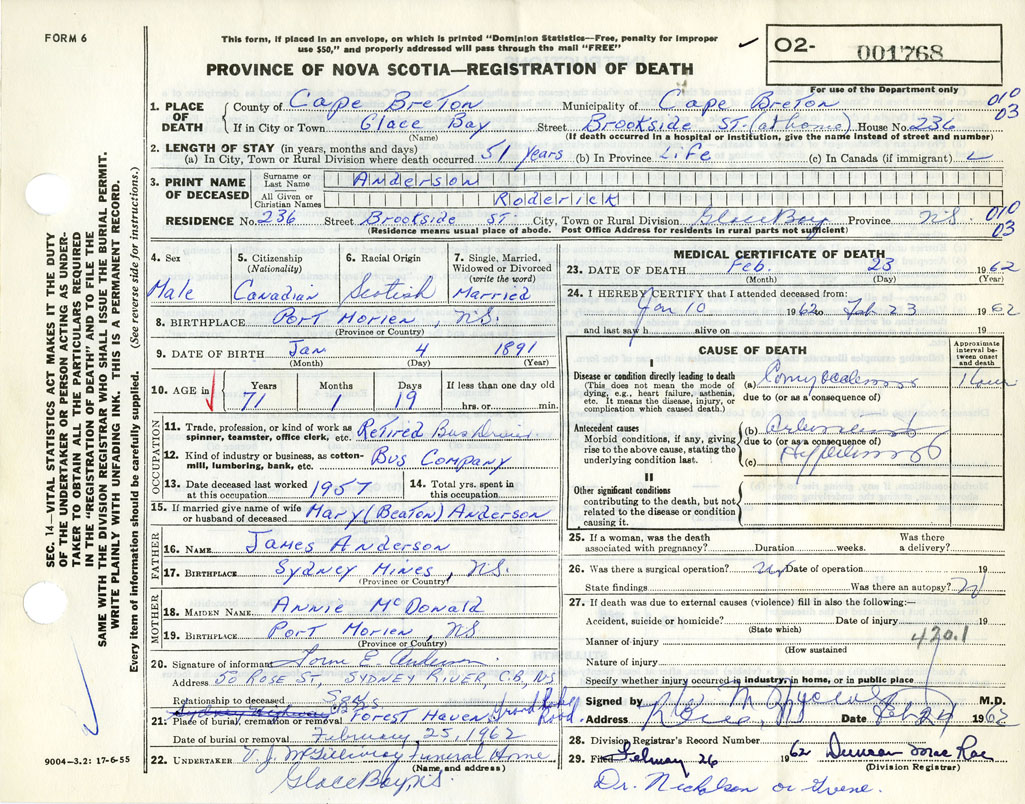 FORM 6
This form, if placed in an envelope, on which is printed "Dominion Statistics—Free, penalty for improper
use $50," and properly addressed will pass through the mail "FREE"
PROVINCE OF NOVA SCOTIA—REGISTRATION OF DEATH
02- 001768
For use of the Department only
1. PLACE OF DEATH
County of Cape Breton Municipality of Cape Breton 010
If in City or Town Glace Bay Street Brookside St. (at home) House No. 236 03
(Name) (If death occurred in a hospital or institution, give the name instead of street and number)
2. LENGTH OF STAY (in years, months and days)
(a) In City, Town or Rural Division where death occurred 51 years (b) In Province Life (c) In Canada (if immigrant)
3. PRINT NAME OF DECEASED
Surname or Last Name Anderson
All Given or Christian Names Roderick
RESIDENCE No. 236 Street Brookside St. City, Town or Rural Division Glace Bay Province NS 010
03
(Residence means usual place of abode. Post Office Address for residents in rural parts not sufficient)
SEC. 14—VITAL STATISTICS ACT MAKES IT THE DUTY
OF THE UNDERTAKER OR PERSON ACTING AS UNDER-
TAKER TO OBTAIN ALL THE PARTICULARS REQUIRED
IN THE "REGISTRATION OF DEATH" AND TO FILE THE
SAME WITH THE DIVISION REGISTRAR WHO SHALL ISSUE THE BURIAL PERMIT.
WRITE PLAINLY WITH UNFADING INK. THIS IS A PERMANENT RECORD.
Every item of information should be carefully supplied. (See reverse side for instructions.)
4. Sex
Male
5. Citizenship
(Nationality)
Canadian
6. Racial Origin
Scotish
7. Single, Married,
Widowed or Divorced
(write the word)
Married
8. BIRTHPLACE Port Morien, NS.
(Province or Country)
9. DATE OF BIRTH Jan 4 1891
(Month) (Day) (Year)
10. AGE in
Years Months Days If less than one day old
71 1 19 hrs. or min.
OCCUPATION
11. Trade, profession, or kind of work as
spinner, teamster, office clerk, etc. Retired Bus Driver
12. Kind of industry or business, as cotton-
mill, lumbering, bank, etc. Bus Company
13. Date deceased last worked
at this occupation 1957
14. Total yrs. spent in
this occupation
15. If married give name of wife
or husband of deceased Mary (Beaton) Anderson
FATHER
16. NAME James Anderson
17. BIRTHPLACE Sydney Mines, NS.
(Province or Country)
MOTHER
18. MAIDEN NAME Annie McDonald
19. BIRTHPLACE Port Morien, NS
(Province or Country)
20. Signature of informant E. Anderson
Address 50 Rose St, Sydney River, C.B, NS
Relationship to deceased Son
21. Place of burial, cremation or removal Forest Haven Road.
Date of burial or removal February 25, 1962
22. UNDERTAKER V. J. McGillivray Funeral Home
(Name and address)
Glace Bay, NS
9004—3.2: 17-6-55
MEDICAL CERTIFICATE OF DEATH
23. DATE OF DEATH Feb. 23 1962
(Month) (Day) (Year)
24. I HEREBY CERTIFY that I attended deceased from:
Jan 10 1962 to Feb 23 1962
and last saw h alive on 19
CAUSE OF DEATH
Approximate
interval be-
tween onset
and death
I
Disease or condition directly leading to death
(This does not mean the mode of
dying, e.g., heart failure, asthenia,
etc. It means the disease, injury, or
complication which caused death.)
(a) 1 hour
due to (or as a consequence of)
Antecedent causes
Morbid conditions, if any, giving
rise to the above cause, stating the
underlying condition last.
(b)
due to (or as a consequence of)
(c)
II
Other significant conditions
contributing to the death, but not
related to the disease or condition
causing it.
25. If a woman, was the death
associated with pregnancy? Duration weeks. Was there
a delivery?
26. Was there a surgical operation? No Date of operation 19
State findings Was there an autopsy? N
27. If death was due to external causes (violence) fill in also the following:—
Accident, suicide or homicide? Date of injury 19
(State which)
Manner of injury 420.1
(How sustained
Nature of injury
Specify whether injury occurred in industry, in home, or in public place
Signed by M.D.
Address Date Feb 24 1962
28. Division Registrar's Record Number
29. Filed February 26 1962 Duncan Mac Rae
(Division Registrar)
Dr. Nicholson